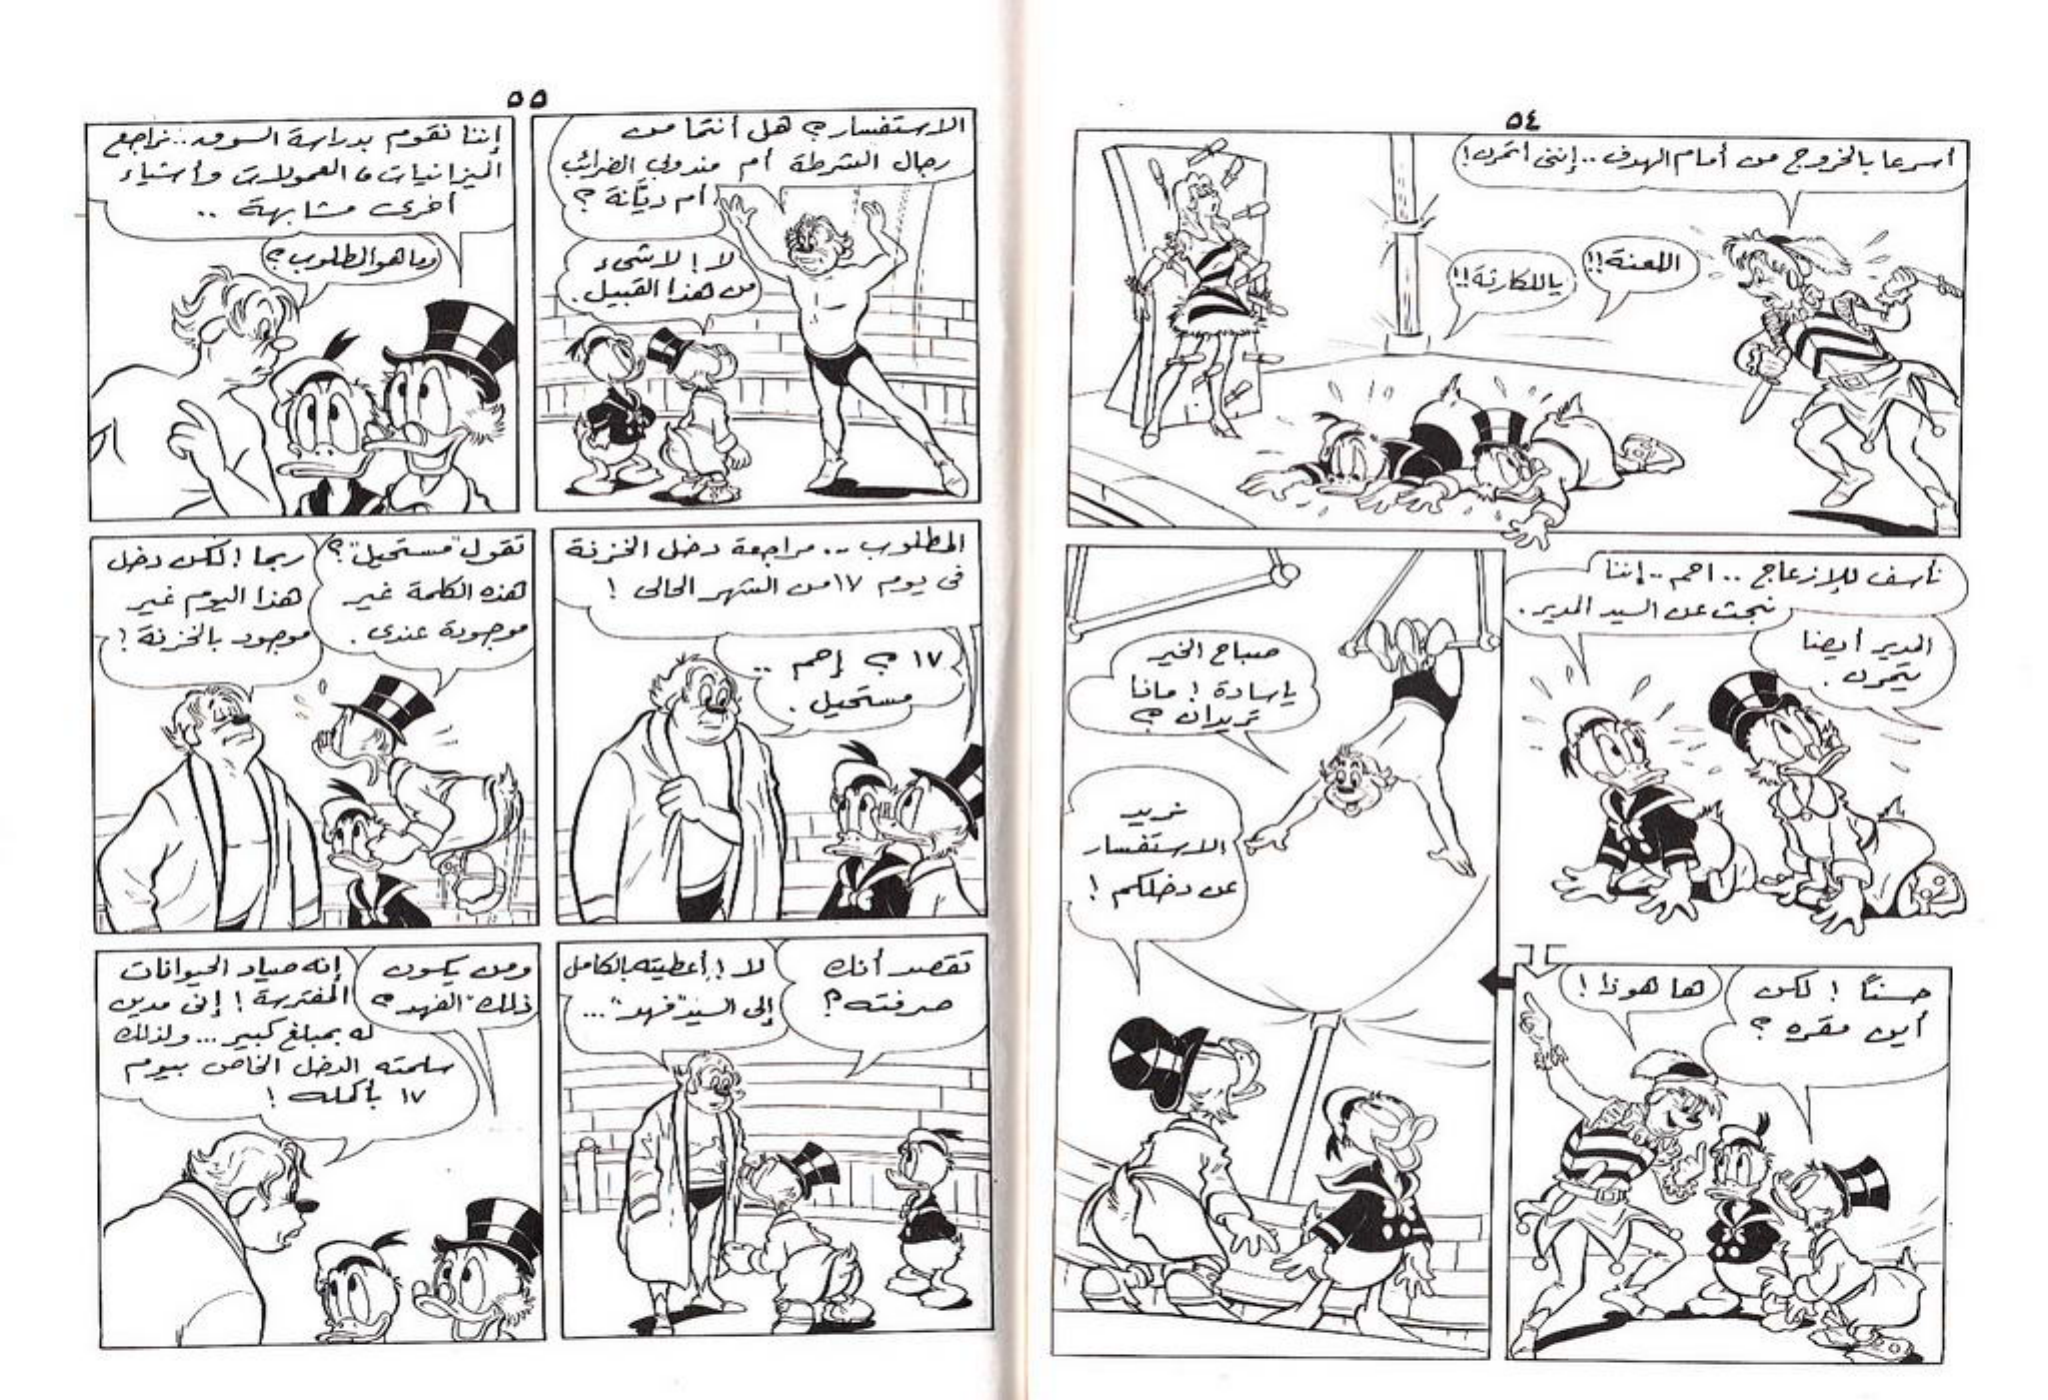 ٥٤
أسرعا بالخروج من أمام الهدف .. إننى أتمرن!
اللعنة!!
ياللكارثة!!
نأسف للإزعاج .. احم .. إننا
نبحث عن السيد المدير.
المدير أيضا
يتمرن.
حسنًا ! لكن
أين مقره ؟
ها هوذا !
صباح الخير
ياسادة ! ماذا
تريدان ؟
نريد
الاستفسار
عن دخلكم !
٥٥
الاستفسار ؟ هل أنتما من
رجال الشرطة أم مندوبى الضرائب
أم ديَّانة ؟
لا ! لا شىء
من هذا القبيل.
إننا نقوم بدراسة السوق .. نراجع
الميزانيات والعمولات وأشياء
أخرى مشابهة ..
وما هو المطلوب ؟
المطلوب .. مراجعة دخل الخزنة
فى يوم ١٧ من الشهر الحالى !
١٧ ؟ إحم ..
مستحيل .
تقول "مستحيل" ؟
هذه الكلمة غير
موجودة عندى .
ربما ! لكن دخل
هذا اليوم غير
موجود بالخزنة !
تقصد أنك
صرفته ؟
لا ! أعطيته بالكامل
إلى السيد "فهد" ...
ومن يكون
ذلك "الفهد" ؟
إنه صياد الحيوانات
المفترسة ! إنى مدين
له بمبلغ كبير ... ولذلك
سلمته الدخل الخاص بيوم
١٧ بأكمله !